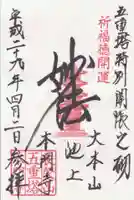 五重塔特別開帳之砌
祈福徳開運
大本山
池上
妙法
本門寺
平成二十九年四月一日参拝
五重塔